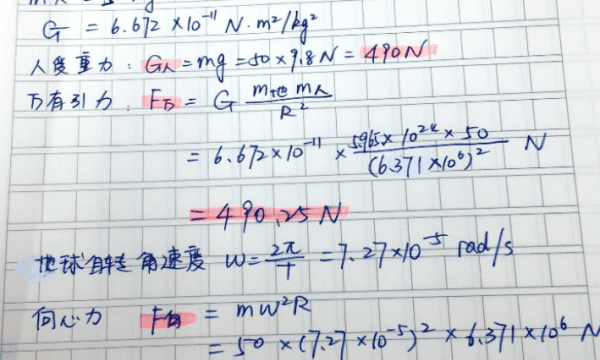 G = 6.672 ×10⁻¹¹ N·m²/kg²
人受重力: G人 = mg = 50×9.8N = 490N
万有引力. F万 = G m地 m人 / R²
= 6.672×10⁻¹¹ × 5.965×10²⁴ × 50 / (6.371×10⁶)² N
= 490.25 N
地球自转角速度 W = 2π/T = 7.27×10⁻⁵ rad/s
向心力 F向 = mW²R
= 50 × (7.27 ×10⁻⁵)² × 6.371×10⁶ N